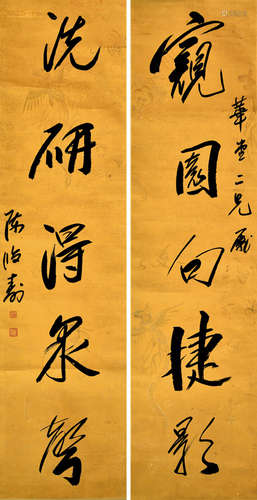 窺園句捷影
華堂二兄
洗研得泉聲
陳壽